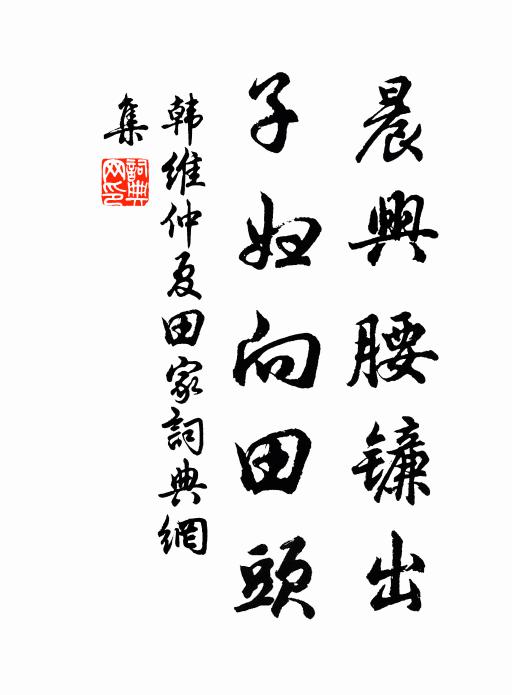 晨興腰镰出
子妇向田頭
韩維仲夏田家詞典網
集
詞典網印